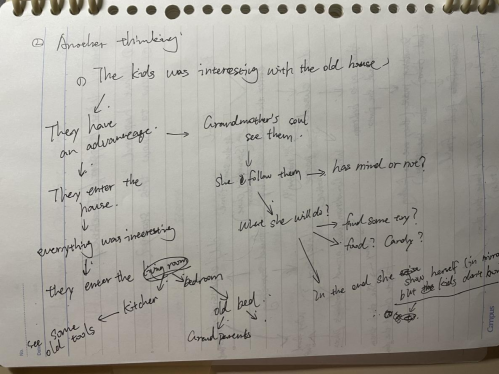 ② Another thinking:
① The kids was interesting with the old house,
They have
an advanceage.
Grandmother's soul
see them.
She follow them
has mind or not?
They enter the
house.
What she will do?
find some toy?
food? Candy?
everything was ineresting
they eneer the living room
bedroom
In the end she
show herself (in mirro
but the kids don't
kitcher
old bed
see some
old tools
Grandparents
Campus